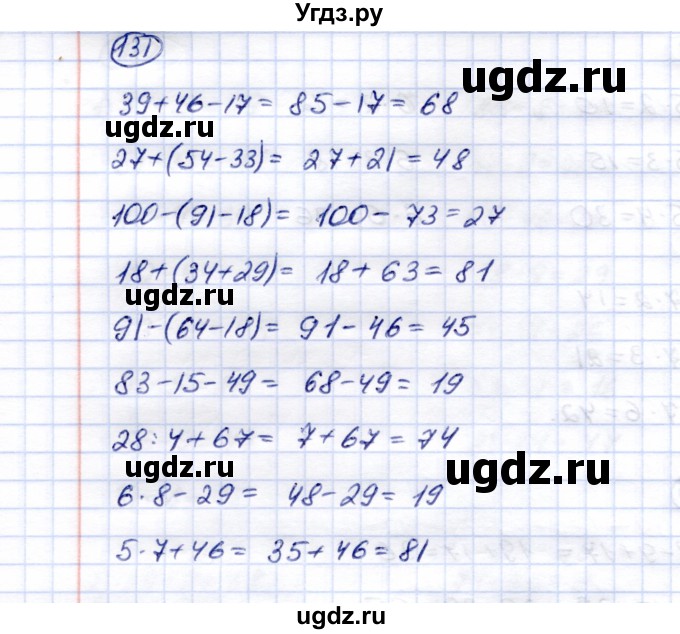 Угдз.ру
131
39+46-17= 85-17= 68
27+(54-33)= 27+21=48
100-(91-18)= 100-73=27
18+(34+29)= 18+63=81
91-(64-18)= 91-46=45
83-15-49= 68-49= 19
28:4+67= 7+67=74
6·8-29= 48-29=19
5·7+46= 35+46=81
ugdz.ru
ugdz.ru
ugdz.ru
ugdz.ru
ugdz.ru
ugdz.ru
ugdz.ru